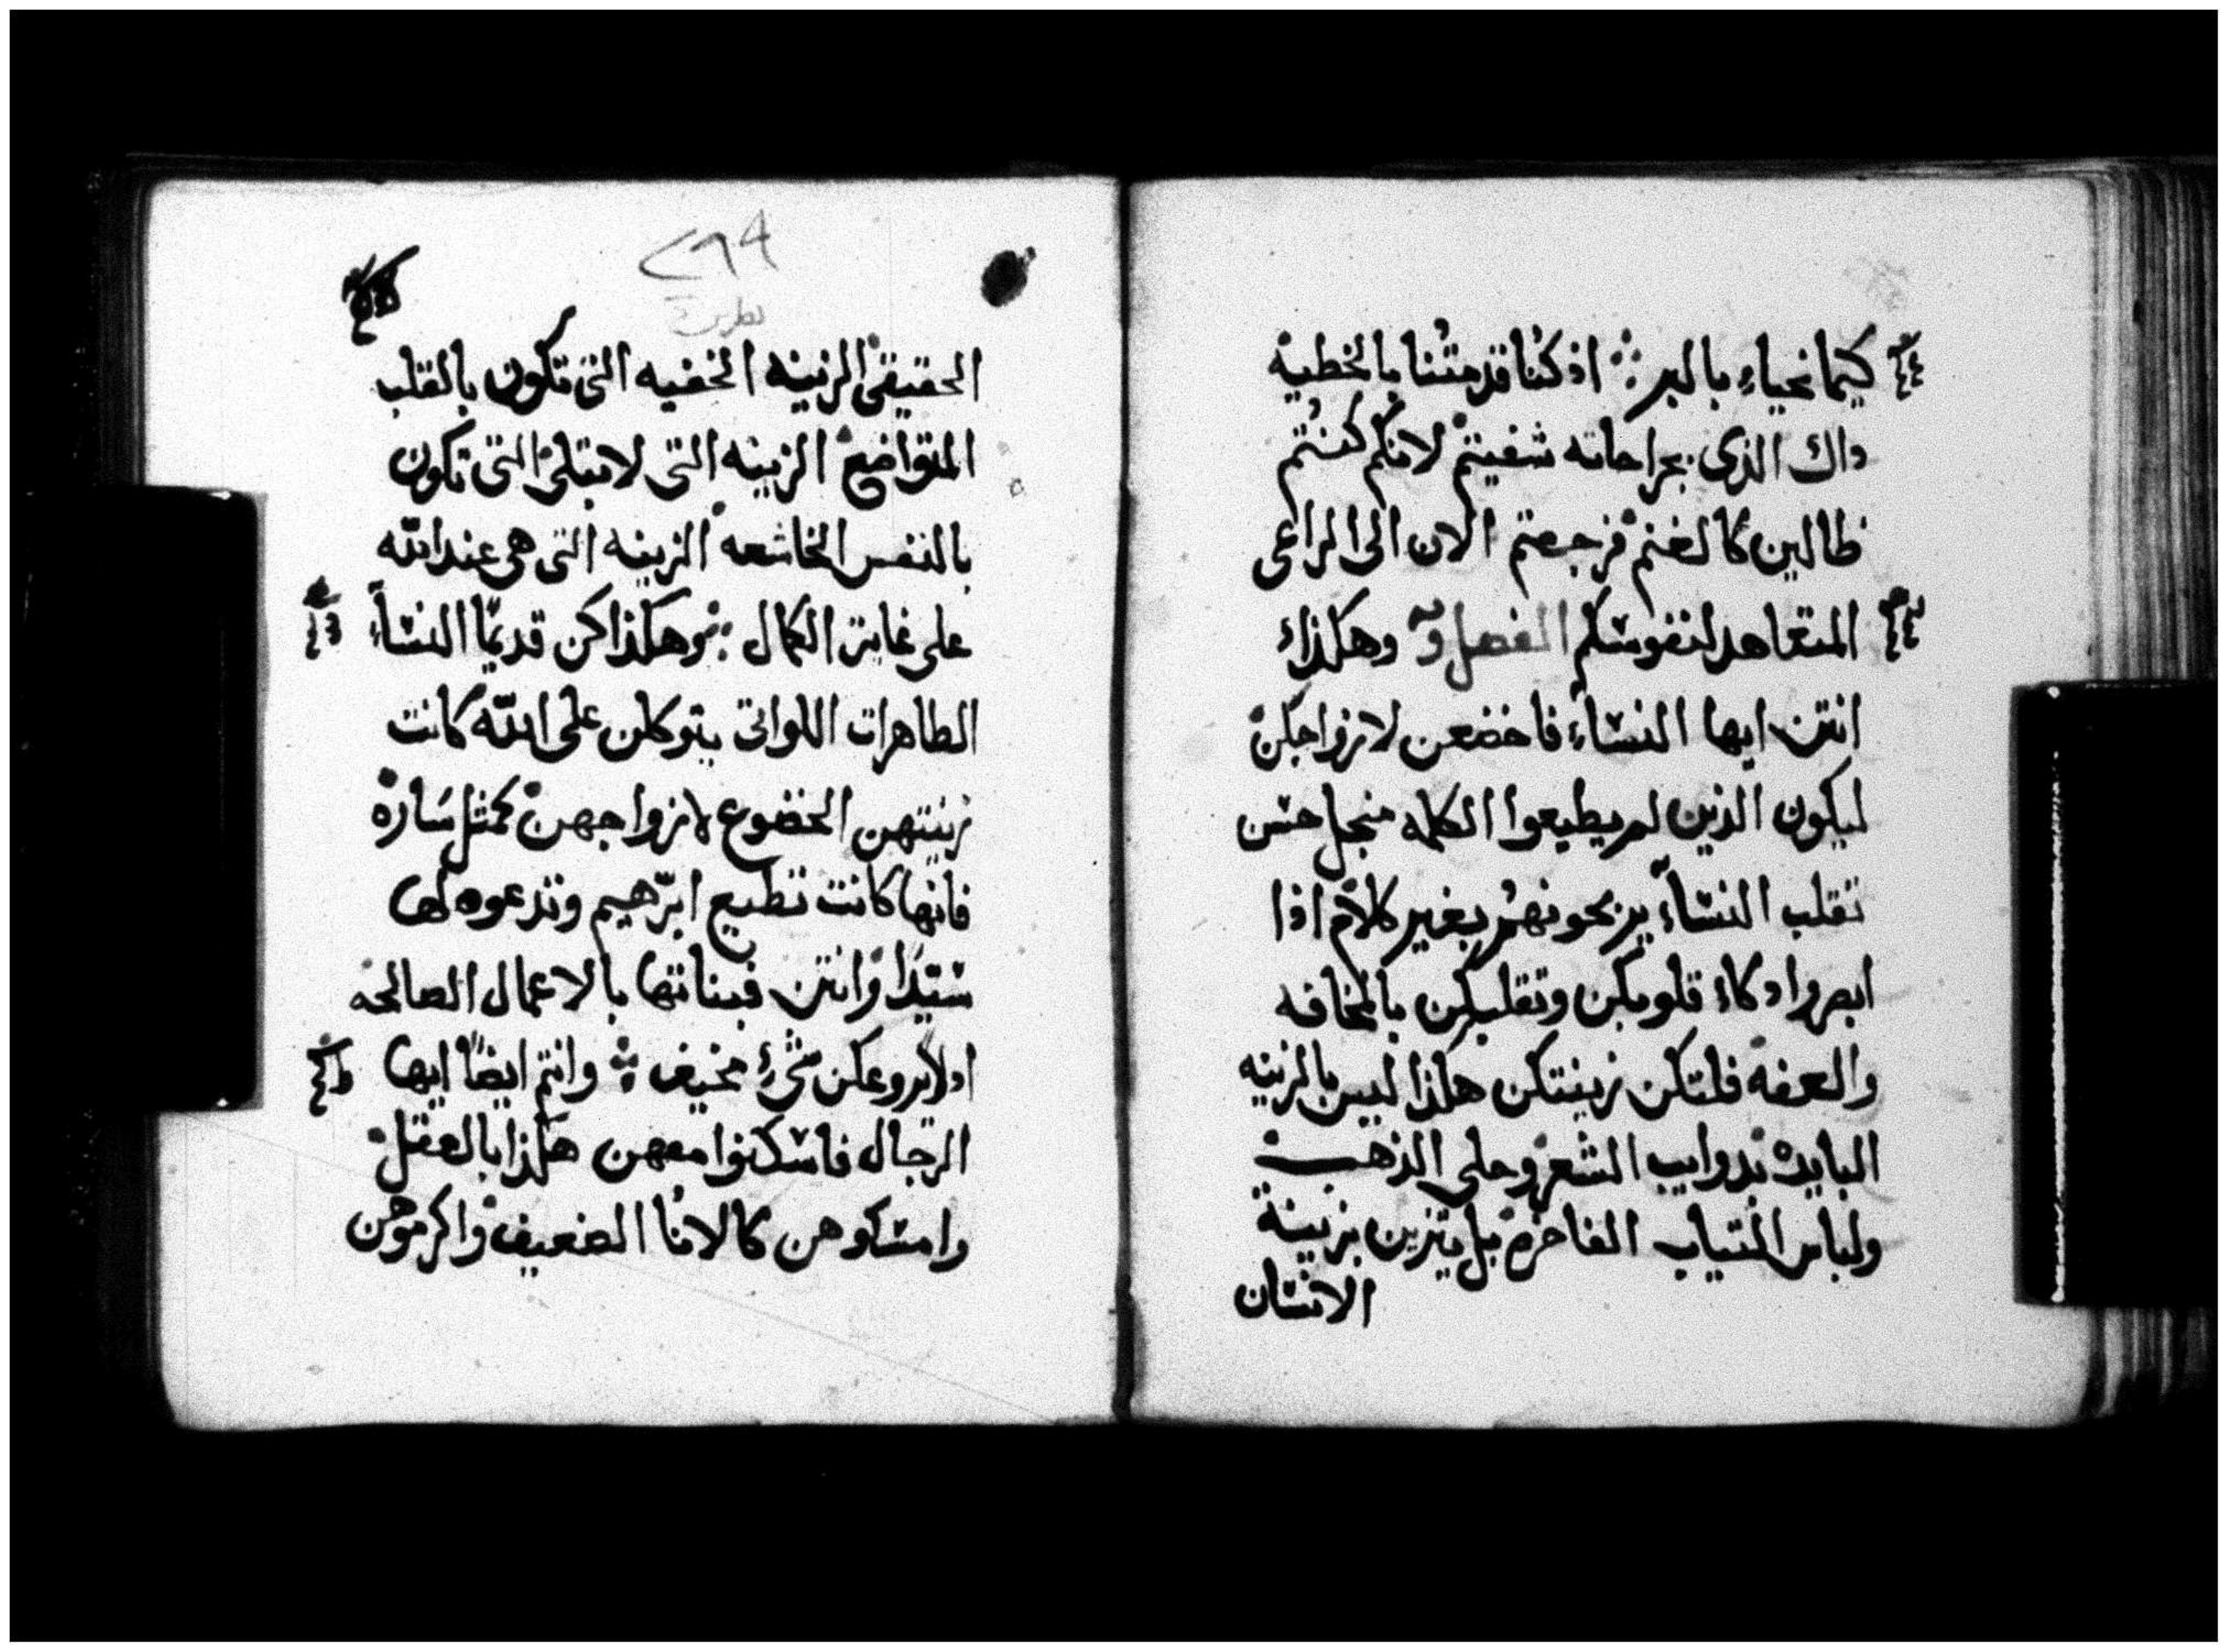 كيما نحياء بالبر ⁘ اذ كنا قد متنا بالخطية
داك الذى بجراحاته شفيتم لانكم كنتم
ظالين كالغنم فرجعتم الان الى الراعى
المتعاهد لنفوسكم الفصل وهكذاء
انتن ايها النساء فاخضعن لازواجكن
ليكون الذين لم يطيعوا الكلمه منجل حسن
تقلب النساء يربحونهم بغير كلام اذا
ابصروا دكاء قلوبكن وتقلبكن بالمخافه
والعفه فلتكن زينتكن هكذا ليس بالزينه
البايده بدوايب الشعر وحلى الذهب
ولباس التياب الفاخره بل يتزين بزينة
الانسان
٢٦٩
الحقيقى الزينه الخفيه التى تكون بالقلب
المتواضع الزينه التى لا تبتلى التى تكون
بالنفس الخاشعه الزينه التى هى عند الله
على غاية الكمال ⁘ وهكذا كن قديما النساء
الطاهرات اللواتى يتوكلن على الله كانت
زينتهن الخضوع لازواجهن كمثل ساره
فانها كانت تطيع ابرهيم وتدعوه لها
سيدا وانتن فبناتها بالاعمال الصالحه
اد لا يروعكن شىء مخيف ⁘ وانتم ايضا ايها
الرجال فاسكنوا معهن هكذا بالعقل
وامسكوهن كالانا الضعيف واكرموهن